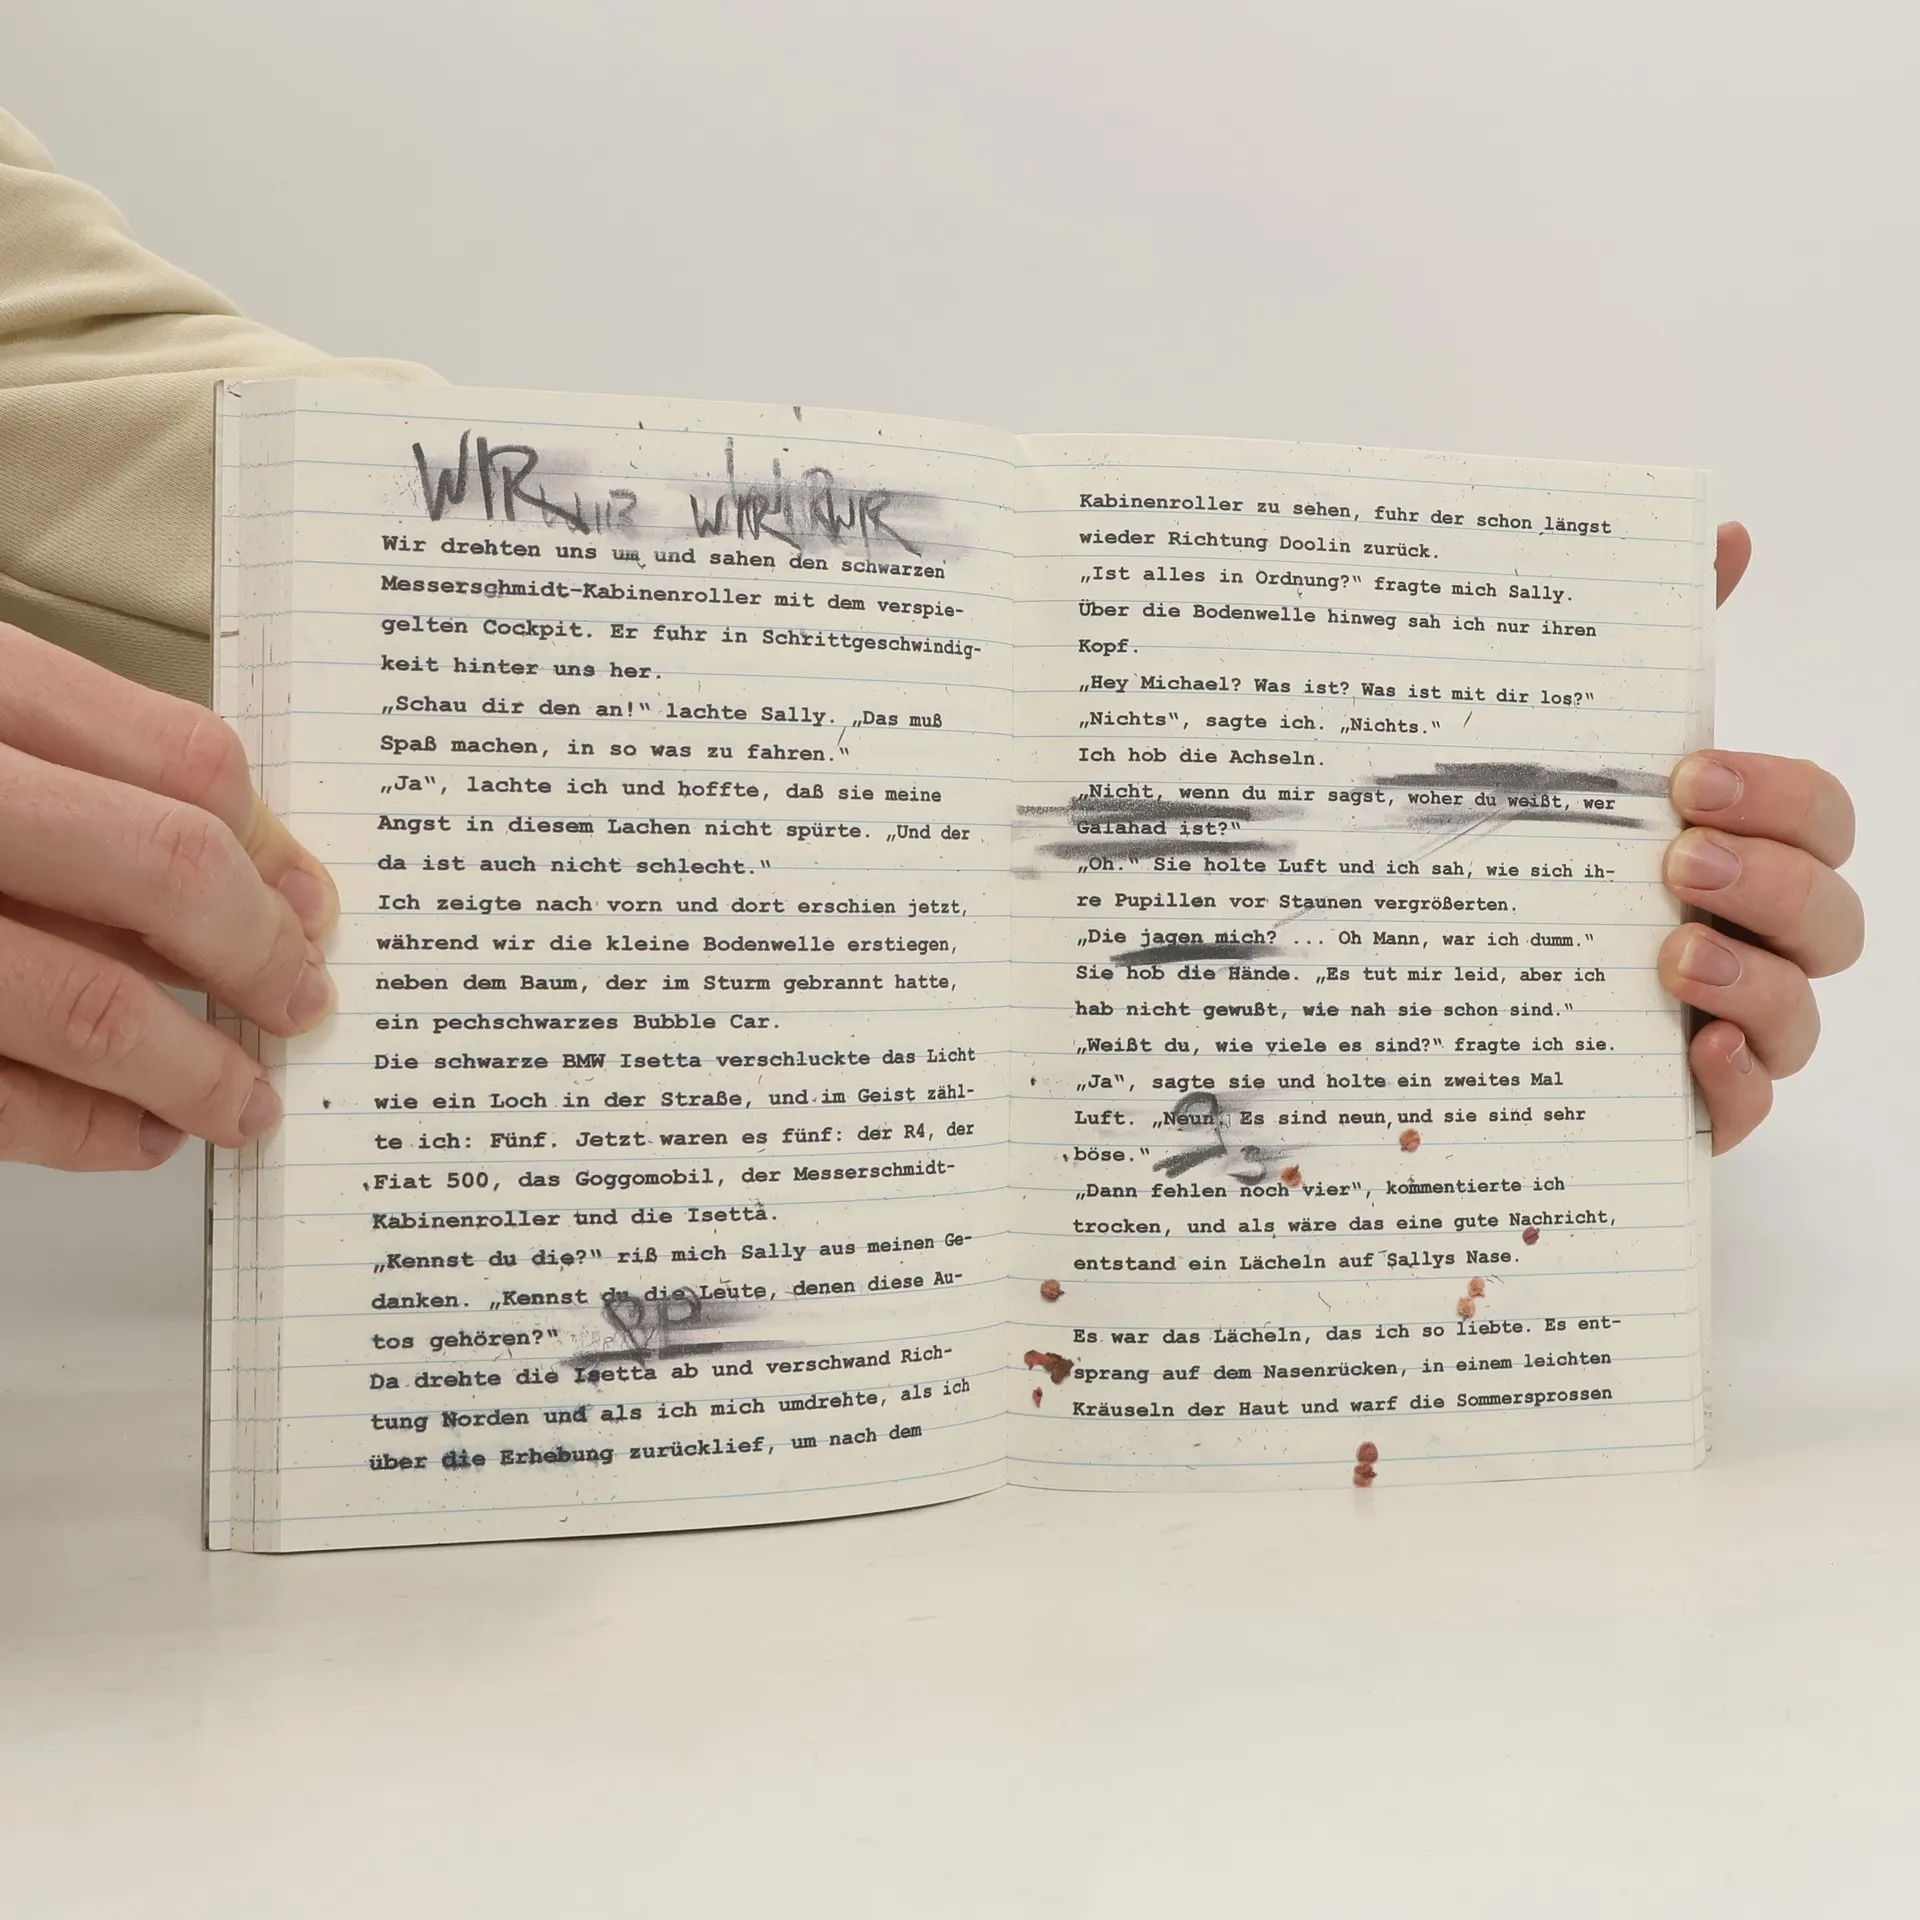 WIR WIR WIR WIR
Wir drehten uns um und sahen den schwarzen
Messerschmidt-Kabinenroller mit dem verspie-
gelten Cockpit. Er fuhr in Schrittgeschwindig-
keit hinter uns her.
„Schau dir den an!" lachte Sally. „Das muß
Spaß machen, in so was zu fahren."
„Ja", lachte ich und hoffte, daß sie meine
Angst in diesem Lachen nicht spürte. „Und der
da ist auch nicht schlecht."
Ich zeigte nach vorn und dort erschien jetzt,
während wir die kleine Bodenwelle erstiegen,
neben dem Baum, der im Sturm gebrannt hatte,
ein pechschwarzes Bubble Car.
Die schwarze BMW Isetta verschluckte das Licht
wie ein Loch in der Straße, und im Geist zähl-
te ich: Fünf. Jetzt waren es fünf: der R4, der
Fiat 500, das Goggomobil, der Messerschmidt-
Kabinenroller und die Isetta.
„Kennst du die?" riß mich Sally aus meinen Ge-
danken. „Kennst du die Leute, denen diese Au-
tos gehören?"
Da drehte die Isetta ab und verschwand Rich-
tung Norden und als ich mich umdrehte, als ich
über die Erhebung zurücklief, um nach dem
Kabinenroller zu sehen, fuhr der schon längst
wieder Richtung Doolin zurück.
„Ist alles in Ordnung?" fragte mich Sally.
Über die Bodenwelle hinweg sah ich nur ihren
Kopf.
„Hey Michael? Was ist? Was ist mit dir los?"
„Nichts", sagte ich. „Nichts."
Ich hob die Achseln.
„Nicht, wenn du mir sagst, woher du weißt, wer
Galahad ist?"
„Oh." Sie holte Luft und ich sah, wie sich ih-
re Pupillen vor Staunen vergrößerten.
„Die jagen mich? ... Oh Mann, war ich dumm."
Sie hob die Hände. „Es tut mir leid, aber ich
hab nicht gewußt, wie nah sie schon sind."
„Weißt du, wie viele es sind?" fragte ich sie.
„Ja", sagte sie und holte ein zweites Mal
Luft. „Neun. Es sind neun, und sie sind sehr
böse."
„Dann fehlen noch vier", kommentierte ich
trocken, und als wäre das eine gute Nachricht,
entstand ein Lächeln auf Sallys Nase.
Es war das Lächeln, das ich so liebte. Es ent-
sprang auf dem Nasenrücken, in einem leichten
Kräuseln der Haut und warf die Sommersprossen